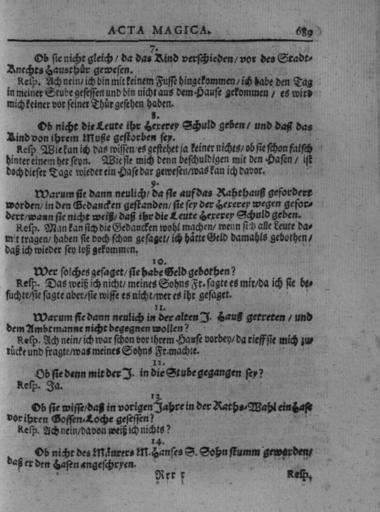 ACTA MAGICA. 689
7.
Ob sie nicht gleich / da das Kind verschieden / vor des Stadt-
Knechts Hausthür gewesen.
Resp. Ach nein / ich bin mit keinem Fusse hingekommen / ich habe den Tag
in meiner Stube gesessen und bin nicht aus dem Hause gekommen / es wird
mich keiner vor seiner Thür gesehen haben.
8.
Ob nicht die Leute ihr Hexerey Schuld geben / und daß das
Kind von ihrem Muße gestorben sey.
Resp. Wie kan ich das wissen es gestehet ja keiner nichts / ob sie schon falsch
hinter einem her seyn. Wie sie mich denn beschuldigen mit den Hasen / ist
doch dieser Tage wieder ein Hase dar gewesen / was kan ich davor.
9.
Warum sie dann neulich / da sie auf das Rahthauß gefordert
worden / in den Gedancken gestanden / sie sey der Hexerey wegen gefor-
dert / wann sie nicht weiß / daß ihr die Leute Hexerey Schuld geben.
Resp. Man kan sich die Gedancken wohl machen / wenn sich alle Leute da-
mit tragen / haben sie doch schon gesaget / ich hätte Geld damahls gebothen /
daß ich wieder sey loß gekommen.
10.
Wer solches gesaget / sie habe Geld gebothen?
Resp. Das weiß ich nicht / meines Sohns Fr. sagte es mir / da ich sie be-
suchte / sie sagte aber / sie wisse es nicht / wer es ihr gesaget.
11.
Warum sie dann neulich in der alten J. Hauß getreten / und
dem Ambtmanne nicht begegnen wollen?
Resp. Ach nein / ich war schon vor ihrem Hause vorbey / da rieff sie mich zu-
rücke und fragte / was meines Sohns Fr. machte.
12.
Ob sie denn mit der J. in die Stube gegangen sey?
Resp. Ja.
13.
Ob sie wisse / daß in vorigen Jahre in der Raths-Wahl ein Hase
vor ihren Gossen-Loche gesessen?
Resp. Ach nein / davon weiß ich nichts?
14.
Ob nicht des Mäurers M. Hanses S. Sohn stumm geworden /
daß er den Hasen angeschryen.
Resp.